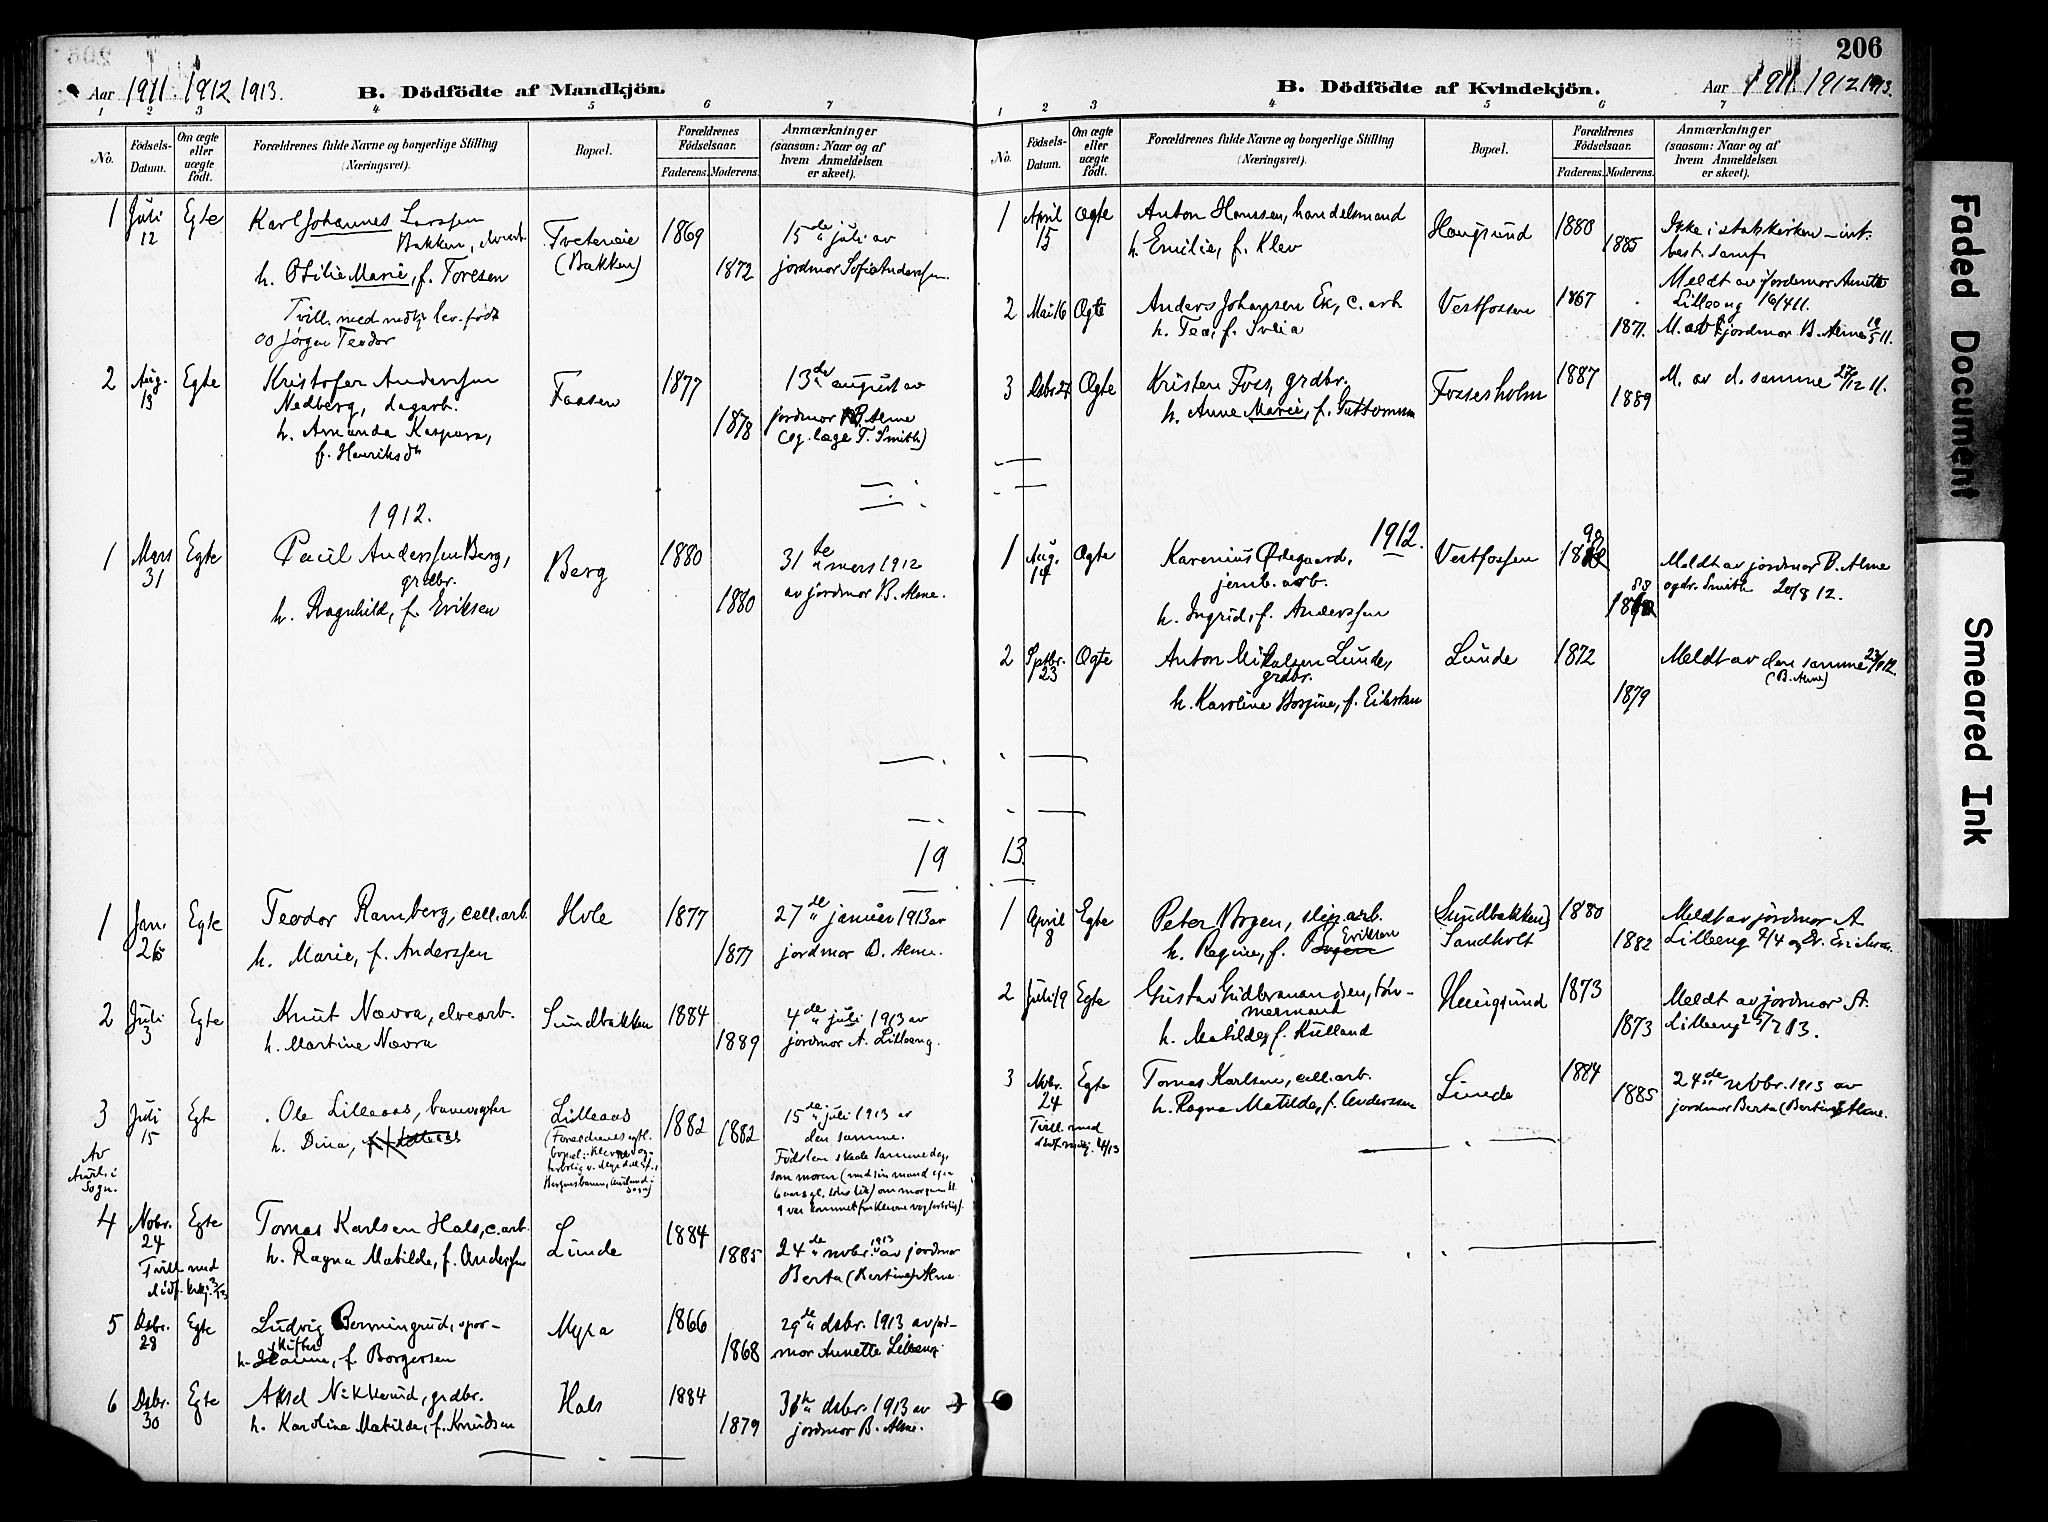 206
Aar 1911. 1912 1913.
B. Dödfödte af Mandkjön.
1 2 3 4 5 6 7
No.
Födsels-Datum.
Om ægte eller uægte födt.
Forældrenes fulde Navne og borgerlige Stilling
(Næringsvei).
Bopæl.
Forældrenes Födselsaar.
Faderens. Moderens.
Anmærkninger
(saasom: Naar og af
hvem Anmeldelsen
er skeet).
1 Juli 12 Egte Karl Johannes Larssen
Bakken,
h. Otilie Marie, f. Toresen
Tvill. med lev. født
Jørgen Teodor
(Bakken)
1869
1872
15de juli av
jordmor Sofie Anderssen.
2 Aug. 13 Egte Kristofer Anderssen
Nedberg, dagarb.
h. Amanda Kaspara,
f. Henriksdtr
Faasen
1877
1878
13de august av
jordmor B. Alme
(og læge T. Smith)
1912.
1 Mars 31 Egte Paul Anderssen Berg,
grdbr.
h. Ragnhild, f. Eriksen
Berg
1880
1880
31te mars 1912
av jordmor B. Alme.
19
1 Jan. 26 Egte Teodor Ramberg, cell.arb.
h. Marie, f. Anderssen
Hole
1877
1877
27de januar 1913 av
jordmor B. Alme.
2 Juli 3 Egte Knut Nævra, elvearb.
h. Martine Nævra
Sundbakken
1884
1889
4de juli 1913 av
jordmor A. Lilleeng.
3 Juli 15 Egte Ole Lilleaas, banevogter
h. Dina,
Av
Sogn.
Lilleaas
1882
1882
15de juli 1913 av
den samme.
4 Nobr. 24 Egte Tomas Karlsen Hals, c.arb.
h. Ragna Matilde, f. Anderssen
Tvill. med
Lunde
1884
1885
24de nobr. 1913 av jordmor
Berta (Bertine) Alme
5 Dsbr. 28 Egte Ludvig Berningrud, spor-
skifter
h. Hanne, f. Borgersen
Myra
1866
1868
29de dsbr. 1913 av jord-
mor Annette Lilleeng.
6 Dsbr. 30 Egte Aksel Nikkerud, grdbr.
h. Karoline Matilde, f. Knudsen
Hals
1884
1879
dsbr. 1913 av
jordmor B. Alme.
B. Dödfödte af Kvindekjön.
Aar 1911. 1912 1913.
1 2 3 4 5 6 7
No.
Födsels-Datum.
Om ægte eller uægte födt.
Forældrenes fulde Navne og borgerlige Stilling
(Næringsvei).
Bopæl.
Forældrenes Födselsaar.
Faderens. Moderens.
Anmærkninger
(saasom: Naar og af
hvem Anmeldelsen
er skeet).
1 April 15 Ægte Anton Hanssen, handelsmand
h. Emilie, f. Klev
Haugsund
1880
1885
Ikke i statskirken – int.
best. samf.
Meldt av jordmor Annette
Lilleeng 16/4 11.
2 Mai 16 Ægte Anders Johansen Ek, c. arb
h. Tea, f. Sveia
Vestfossen
1867
1871.
M. av jordmor B. Alme 19/5 11.
3 Dsbr 27 Ægte Kristen Foss, grdbr.
h. Anne Marie, f. Guttormsen
Fossesholm
1887
1889
M. av d. samme 28/12 11.
1912.
1 Aug. 14 Ægte Karenius Ødegaard,
jernb. arb.
h. Ingrid, f. Anderssen
Vestfossen
Meldt av jordmor B. Alme
og dr. Smith 20/8 12.
2 Sptbr. 23 Ægte Anton Mikalsen Lunde,
grdbr.
h. Karoline Borgine, f. Eilertsen
Lunde
1872
1879
Meldt av den samme
(B. Alme)
13.
1 April 8 Egte Peter Borgen, slip.arb.
h. Regine, f. Eriksen
(Sundbakken)
Sandholt
1880
1882
Meldt av jordmor A.
Lilleeng 9/4 og Dr. Eriksen.
2 Juli 19 Egte Gustav Gudbrandsen, tøm-
mermand
h. Matilde, f. Kulland
Haugsund
1873
1873
Meldt av jordmor A.
Lilleeng
3 Nvbr. 24 Egte Tomas Karlsen, cell. arb.
h. Ragna Matilde, f. Anderssen
Tvill. med
Lunde
1884
1885
24de nvbr. 1913 av
jordmor Berta (Bertine) Alme.
Faded Document
Smeared Ink